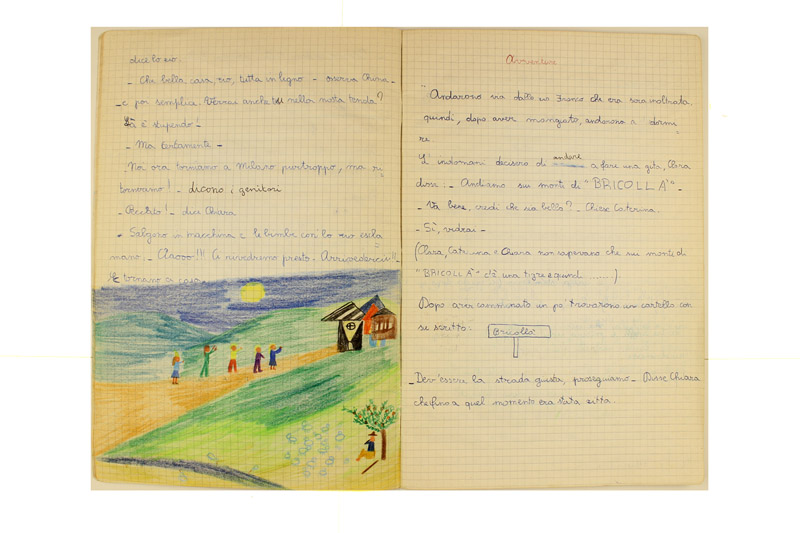 dice lo zio.
- Che bella casa, zio, tutta in legno - osserva Chiara -
- e poi semplice. Verrai anche tu nella nostra tenda?
Là è stupendo! -
- Ma certamente -
- Noi ora torniamo a Milano purtroppo, ma ri
torneremo! - dicono i genitori
- Peccato! - dice Chiara
Salgono in macchina e le bimbe con lo zio escla
mano. - Ciaooo!!! Ci rivedremo presto. Arrivederci!!! -
E tornano a casa
Avventura
Andarono via dallo zio Franco che era sera inoltrata,
quindi, dopo aver mangiato, andarono a dormi
re.
L'indomani decisero di andare a fare una gita, Clara
disse: - Andiamo sul monte di "BRICOLLA'" -
- Va bene, credi che sia bello? - Chiese Caterina.
- Sì, vedrai -
(Clara, Caterina e Chiara non sapevano che sul monte di
"BRICOLLA'" c'è una tigre e quindi ......)
Dopo aver camminato un po' trovarono un cartello con
su scritto: Bricollà
- Dev'essere la strada giusta, proseguiamo - Disse Chiara
che fino a quel momento era stata zitta.